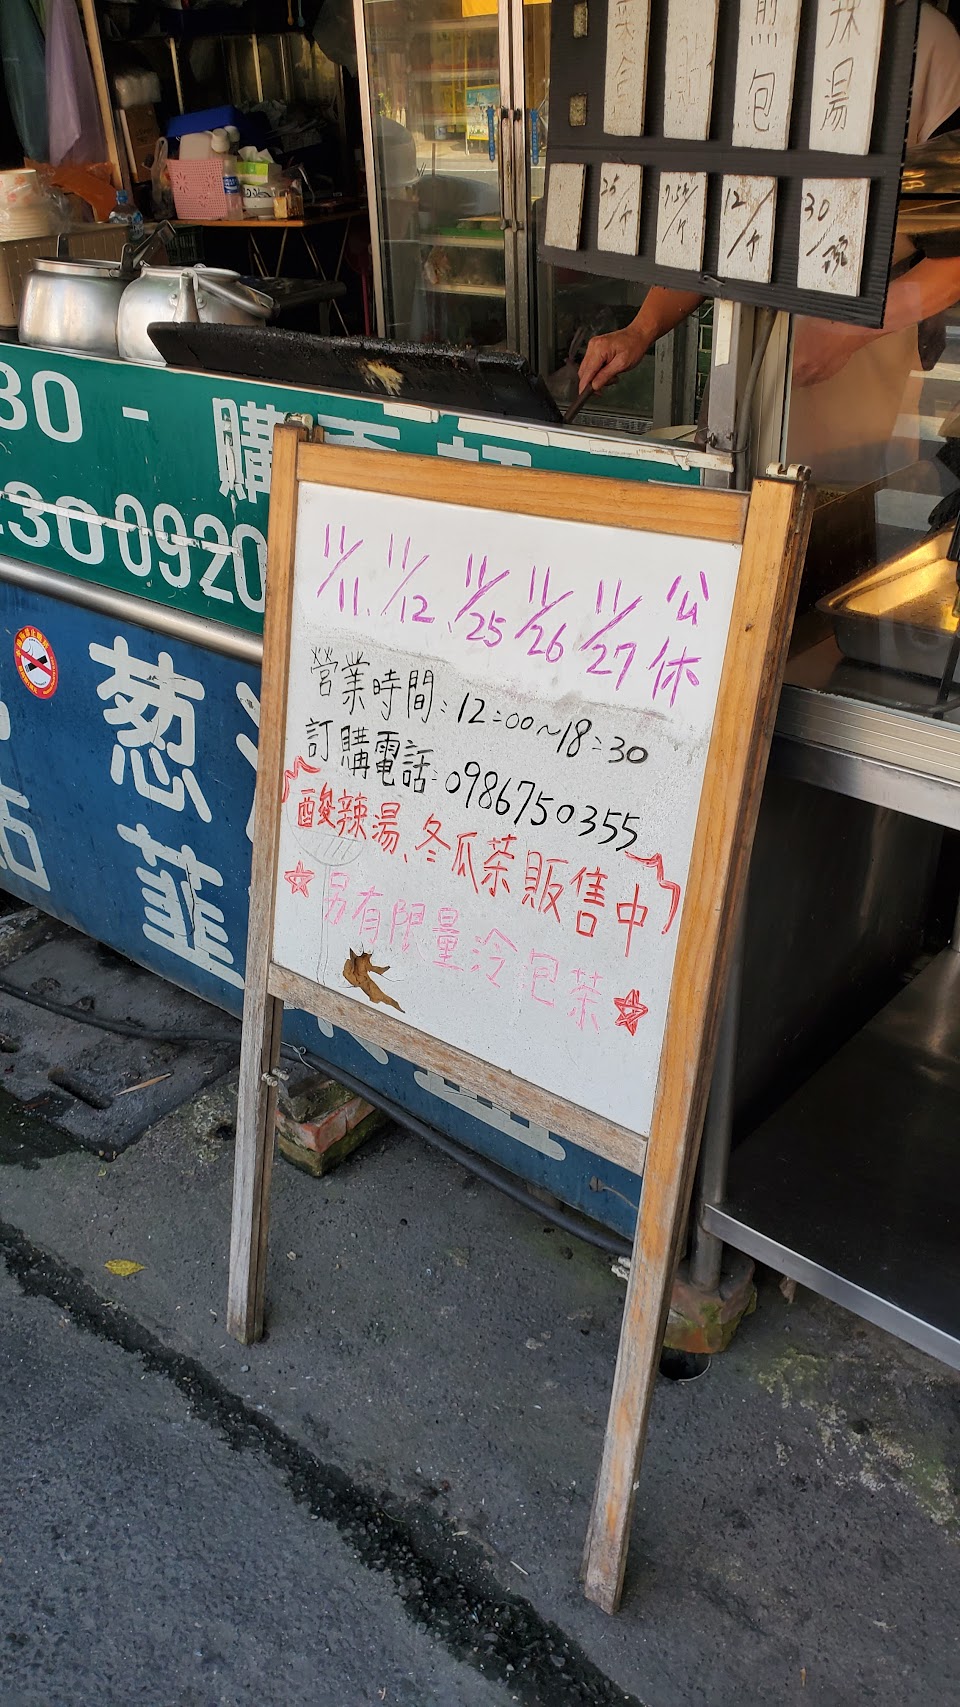 煎包
辣湯
25/个
7.5元/个
12/个
30/碗
30 -
購
300920
葱
韮
11/11、11/12、11/25 11/26 11/27 公休
營業時間:12:00~18:30
訂購電話:0986750355
酸辣湯、冬瓜茶販售中
☆另有限量冷包茶☆